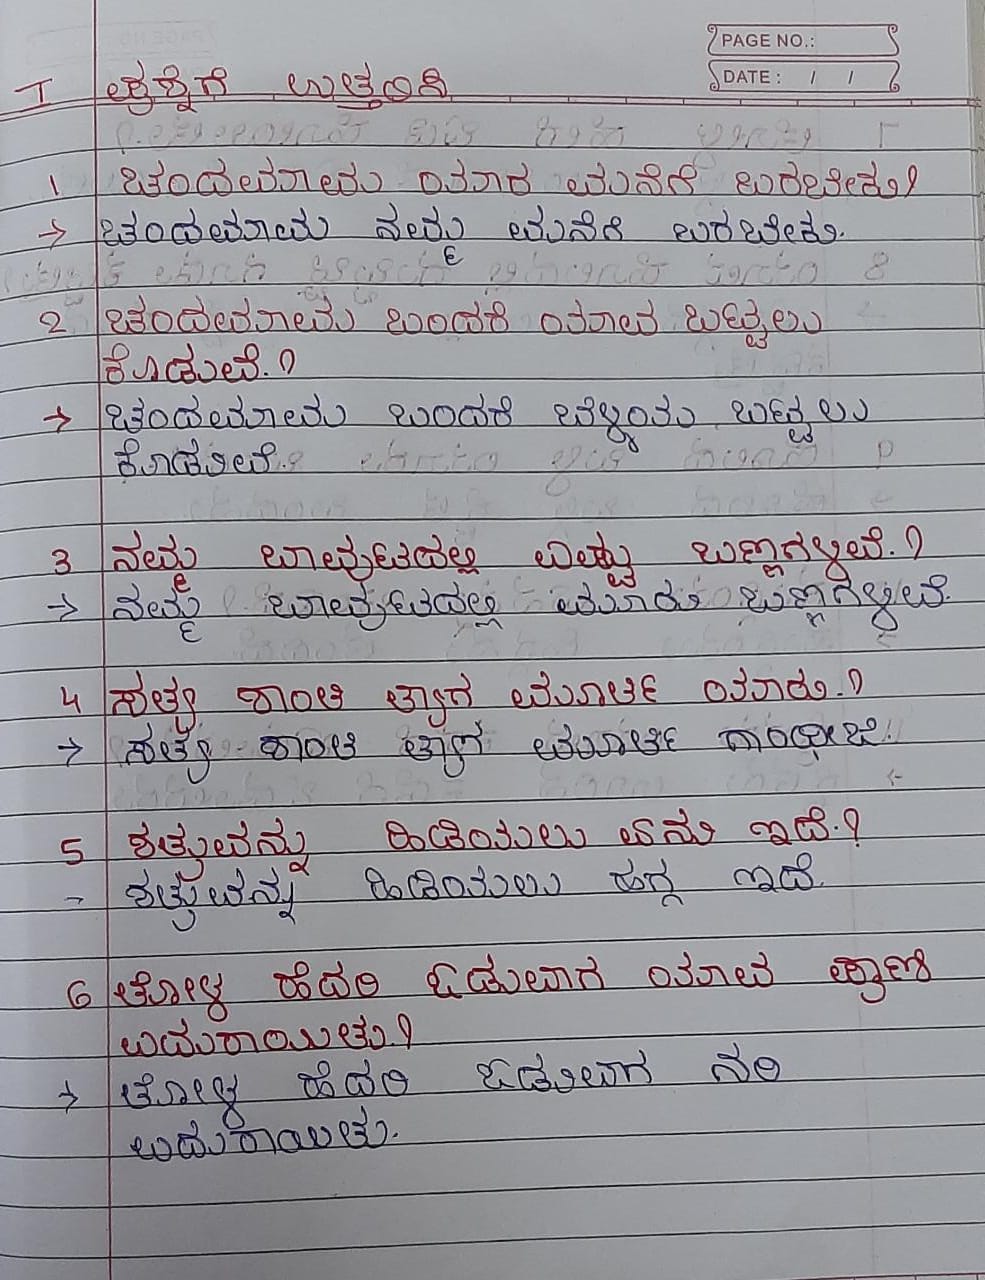 PAGE NO.:
DATE: / /
I ಪ್ರಶ್ನೆಗೆ ಉತ್ತರಿಸಿ
1 ಚಂದಮಾಮ ಯಾರ ಮನೆಗೆ ಬರಬೇಕು?
→ ಚಂದಮಾಮ ನಮ್ಮ ಮನೆಗೆ ಬರಬೇಕು.
2 ಚಂದಮಾಮ ಬಂದರೆ ಯಾವ ಬಟ್ಟಲು
ಕೊಡುವೆ.?
→ ಚಂದಮಾಮ ಬಂದರೆ ಬೆಳ್ಳಿಯ ಬಟ್ಟಲು
ಕೊಡುವೆ.
3 ನಮ್ಮ ಬಾವುಟದಲ್ಲಿ ಎಷ್ಟು ಬಣ್ಣಗಳಿವೆ.?
→ ನಮ್ಮ ಬಾವುಟದಲ್ಲಿ ಮೂರು ಬಣ್ಣಗಳಿವೆ.
4 ಸತ್ಯ ಶಾಂತಿ ತ್ಯಾಗ ಮೂರ್ತಿ ಯಾರು.?
→ ಸತ್ಯ ಶಾಂತಿ ತ್ಯಾಗ ಮೂರ್ತಿ ಗಾಂಧೀಜಿ.
5 ಶತ್ರುವನ್ನು ಹಿಡಿಯಲು ಏನು ಇದೆ.?
- ಶತ್ರುವನ್ನು ಹಿಡಿಯಲು ಹಗ್ಗ ಇದೆ.
6 ತೋಳ ಹೆದರಿ ಓಡುವಾಗ ಯಾವ ಪ್ರಾಣಿ
ಎದುರಾಯಿತು.?
→ ತೋಳ ಹೆದರಿ ಓಡುವಾಗ ನರಿ
ಎದುರಾಯಿತು.